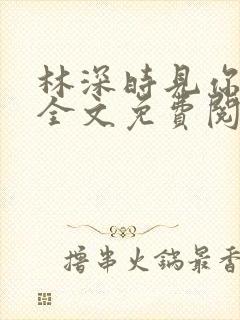 林深時見你
全文免費閱
撸串火鍋最香